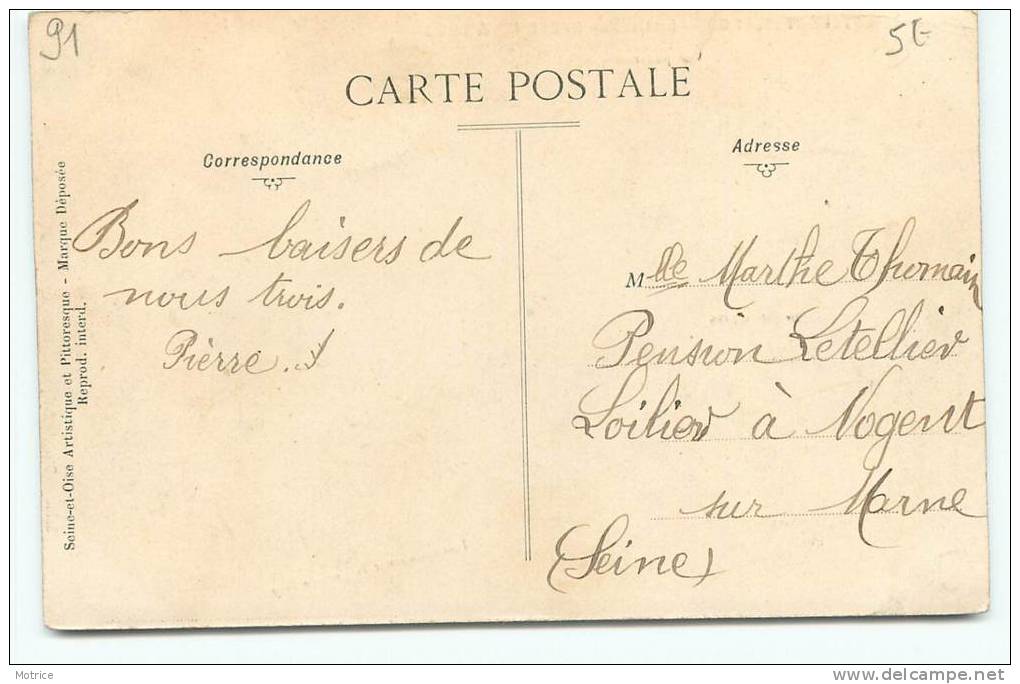 91
5€
CARTE POSTALE
Correspondance
Adresse
Seine-et-Oise Artistique et Pittoresque - Marque Déposée
Reprod. interd.
Bons baisers de
nous trois.
Pièrre.
Mlle Marthe Thomain
Pension Letellier
Loilier à Nogent
sur Marne
(Seine)
Motrice
www.delcampe.net